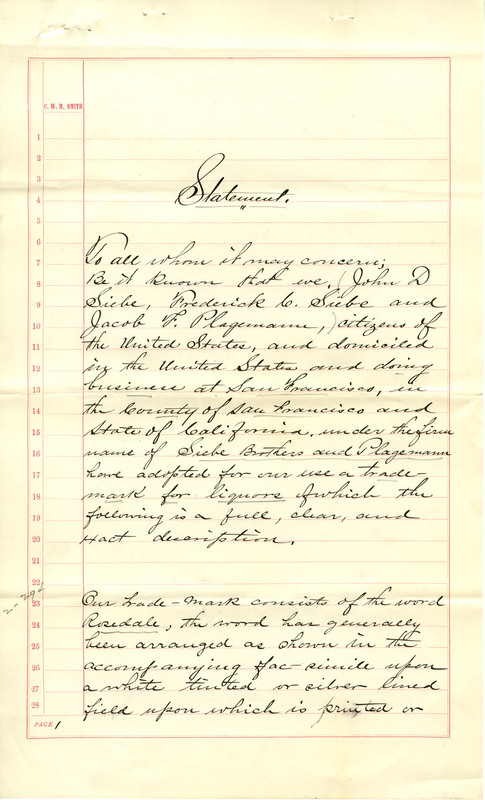 C. W. M. SMITH
1
2
3
4 Statement.
5
6
7 To all whom it may concern;
8 Be it known that we, (John D
9 Siebe, Frederick C. Siebe and
10 Jacob F. Plagemann,) citizens of
11 the United States, and domiciled
12 in the United States and doing
13 business at San Francisco, in
14 the County of San Francisco and
15 State of California. under the firm
16 name of Siebe Brothers and Plagemann
17 have adopted for our use a trade-
18 mark for liquors of which the
19 following is a full, clear, and
20 exact description.
21
22
2-294
23 Our trade-mark consists of the word
24 Rosedale, the word has generally
25 been arranged as shown in the
26 accompanying fac-simile upon
27 a white tinted or silver lined
28 field upon which is printed or
PAGE 1